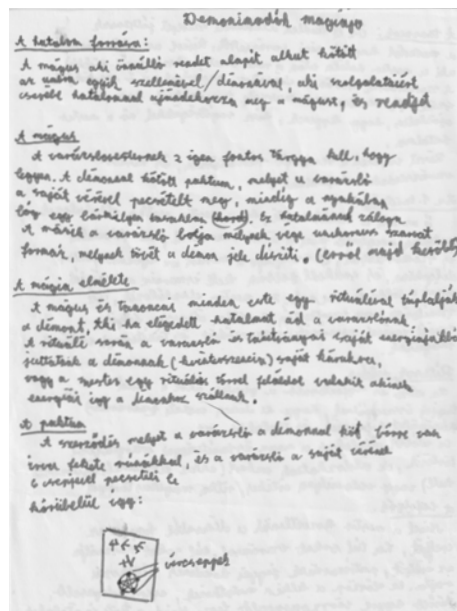 A hatalom forrása:
A mágus aki önálló rendet alapít alkut kötött
az egyik szellemével/démonával, aki szolgálataiért
cserébe hatalommal ajándékozza meg a mágust, és rendjét
A mágus
A varázslómesternek 2 igen fontos tárgya kell, hogy
legyen. A démonnal kötött paktum, melyet a varázsló
a saját vérével pecsételt meg, mindig a nyakában
lóg egy bármilyen (hord). Ez hatalmának záloga.
A másik a varázsló botja melynek vége szarvat
formáz, melynek tövét a démon jele díszíti. (erről majd később)
A mágia elmélete
A mágus és tanoncai minden este egy rituáléval táplálják
a démont, aki ha elégedett hatalmat ád a varázslónak
A rituálé során a varázsló és tanítványai saját energiájukból
juttatnak a démonnak saját kárukra,
vagy a mester egy rituális tőrrel feláldoz valakit akinek
energiái így a démonhoz szállnak.
A paktum
A szerződés melyet a varázsló a démonnal köt,
írva fekete rúnákkal, és a varázsló a saját vérével
pecsételi le
körülbelül így:
vércseppek